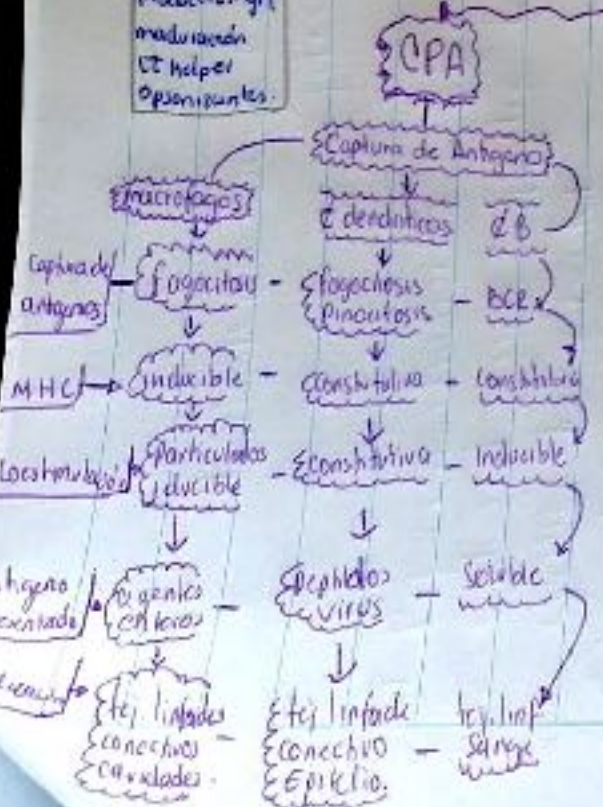 maduración
LT helper
Opsonizantes.
CPA
Captura de Antígeno
macrofagos
C dendriticas
CB
Captura de
antígenos
fagocitosis
fagocitosis
Pinocitosis
BCR
MHC
inducible
Constitutiva
Constitutiva
Coestimulación
particulados
iducible
Constitutiva
Inducible
agentes
enteros
peptidos
virus
Soluble
tej. linfodes
conectivos
cavidades.
tej linfode
conectivo
Epitelio.
tej. linf
Sange